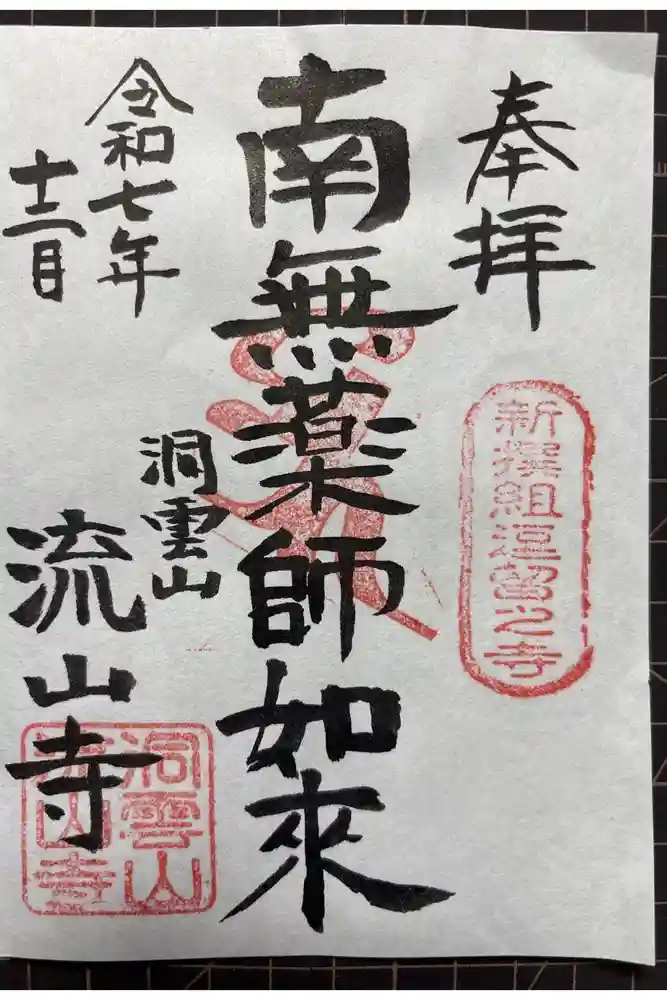 奉拝
新撰組 之寺
南無薬師如來
洞雲山
流山寺
令和七年
十二月
洞雲山
流山寺